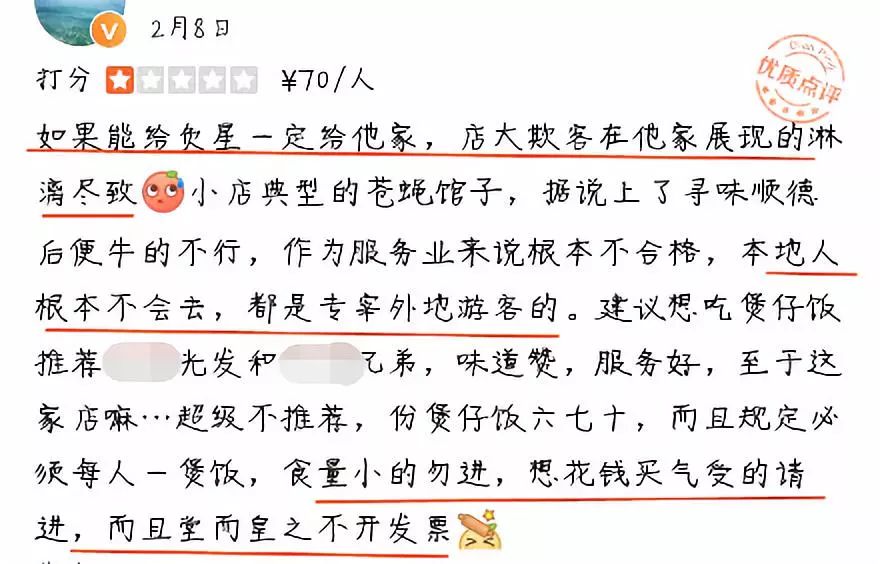 V
2月8日
打分 ¥70/人
优质点评
如果能给负星一定给他家，店大欺客在他家展现的淋
漓尽致 小店典型的苍蝇馆子，据说上了寻味顺德
后便牛的不行，作为服务业来说根本不合格，本地人
根本不会去，都是专宰外地游客的。建议想吃煲仔饭
推荐 光发和 兄弟，味道赞，服务好，至于这
家店嘛…超级不推荐，份煲仔饭六七十，而且规定必
须每人一煲饭，食量小的勿进，想花钱买气受的请
进，而且堂而皇之不开发票